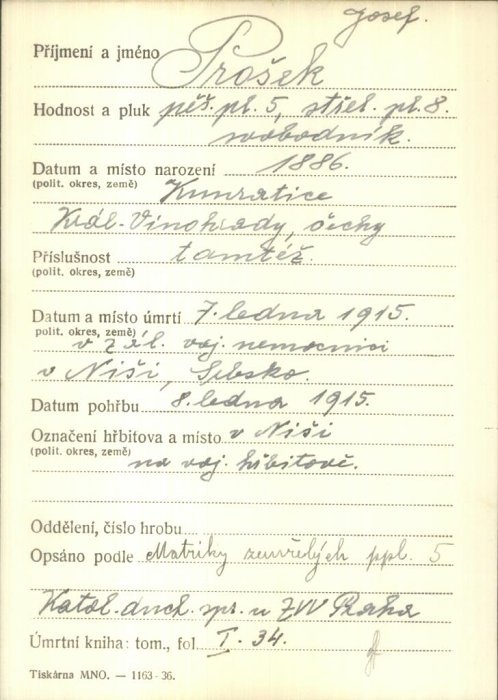 Josef.
Příjmení a jméno Prošek
Hodnost a pluk pěš. pl. 5, střel. pl. 8.
svobodník.
Datum a místo narození 1886.
(polit. okres, země) Kunratice
Král. Vinohrady, Čechy
Příslušnost tamtéž.
(polit. okres, země)
Datum a místo úmrtí 7. ledna 1915.
polit. okres, země) v zál. voj. nemocnici
v Niši, Srbsko.
Datum pohřbu 8. ledna 1915.
Označení hřbitova a místo v Niši
(polit. okres, země) na voj. hřbitově.
Oddělení, číslo hrobu
Opsáno podle Matriky zemřelých ppl. 5
Katol. duch. spr. u ZVV Praha
Úmrtní kniha: tom., fol. I. 34.
Tiskárna MNO. — 1163-36.